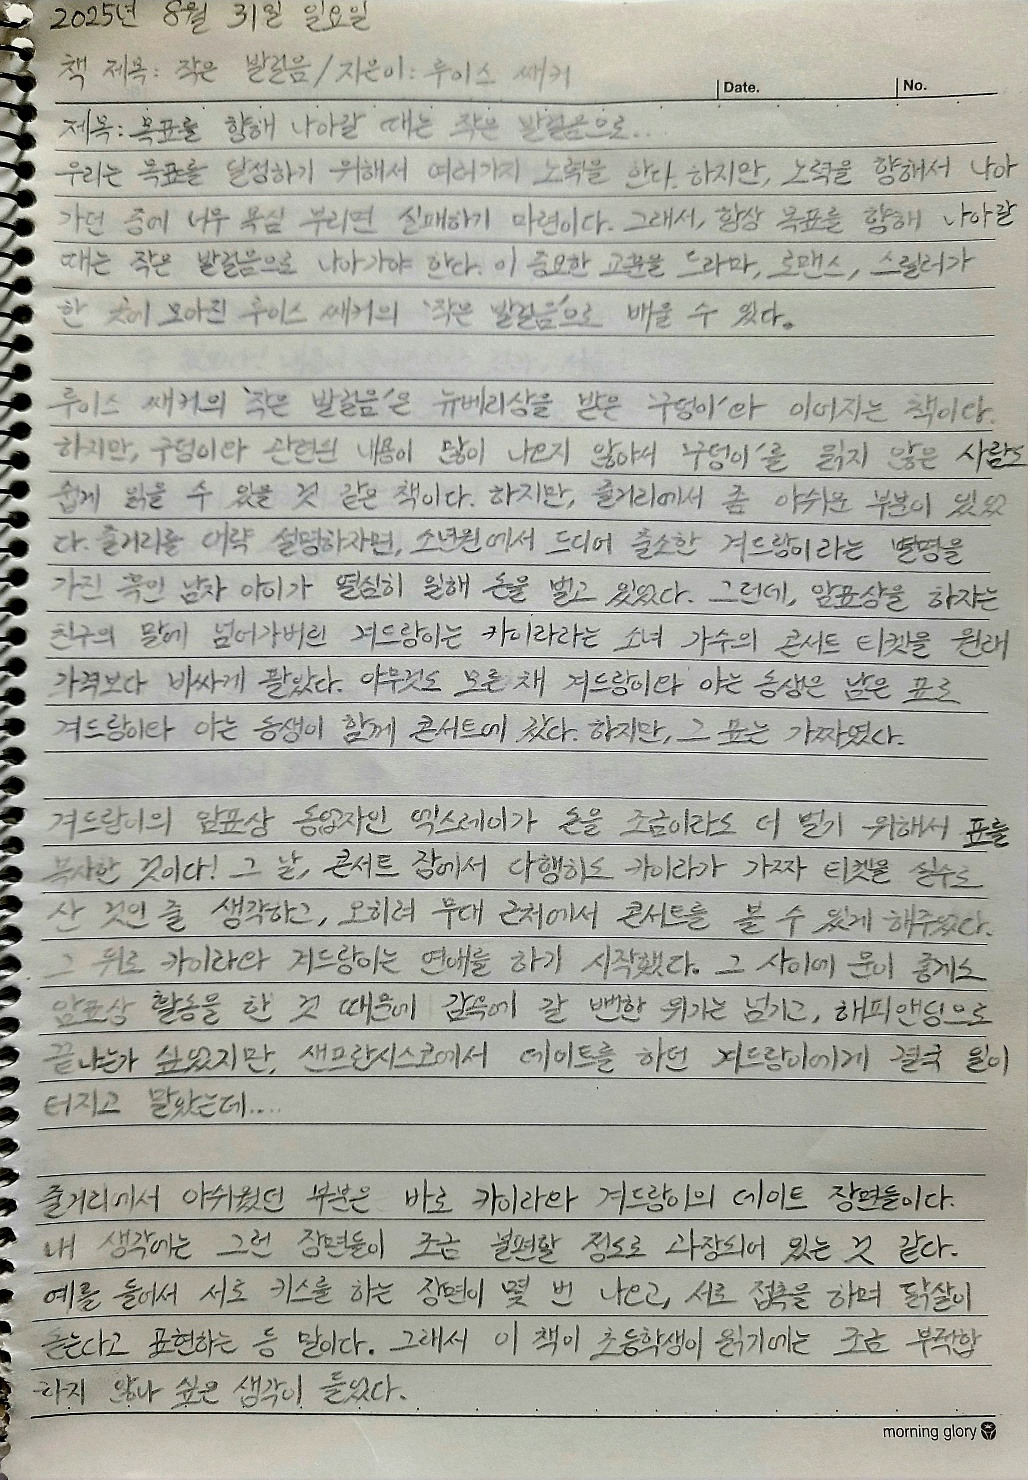 2025년 8월 31일 일요일
책 제목: 작은 발걸음/지은이: 루이스 쌔커
Date.
No.
제목: 목표를 향해 나아갈 때는 작은 발걸음으로..
우리는 목표를 달성하기 위해서 여러가지 노력을 한다. 하지만, 노력을 향해서 나아
가던 중에 너무 욕심 부리면 실패하기 마련이다. 그래서, 항상 목표를 향해 나아갈
때는 작은 발걸음으로 나아가야 한다. 이 중요한 교훈을 드라마, 로맨스, 스릴러가
한 곳에 모아진 루이스 쌔커의 '작은 발걸음'으로 배울 수 있다.
루이스 쌔커의 '작은 발걸음'은 뉴베리상을 받은 '구덩이'와 이어지는 책이다.
하지만, 구덩이와 관련된 내용이 많이 나오지 않아서 '구덩이'를 읽지 않은 사람도
쉽게 읽을 수 있을 것 같은 책이다. 하지만, 줄거리에서 좀 아쉬운 부분이 있었
다. 줄거리를 대략 설명하자면, 소년원에서 드디어 출소한 겨드랑이라는 별명을
가진 흑인 남자 아이가 열심히 일해 돈을 벌고 있었다. 그런데, 암표상을 하자는
친구의 말에 넘어가버린 겨드랑이는 카이라라는 소녀 가수의 콘서트 티켓을 원래
가격보다 비싸게 팔았다. 아무것도 모른 채 겨드랑이와 아는 동생은 남은 표로
겨드랑이와 아는 동생이 함께 콘서트에 갔다. 하지만, 그 표는 가짜였다.
겨드랑이의 암표상 동업자인 엑스레이가 돈을 조금이라도 더 벌기 위해서 표를
복사한 것이다! 그 날, 콘서트 장에서 다행히도 카이라가 가짜 티켓을 실수로
산 것인 줄 생각하고, 오히려 무대 근처에서 콘서트를 볼 수 있게 해주었다.
그 뒤로 카이라와 겨드랑이는 연애를 하기 시작했다. 그 사이에 운이 좋게도
암표상 활동을 한 것 때문에 감옥에 갈 뻔한 위기는 넘기고, 해피앤딩으로
끝나는가 싶었지만, 샌프란시스코에서 데이트를 하던 겨드랑이에게 결국 일이
터지고 말았는데....
줄거리에서 아쉬웠던 부분은 바로 카이라와 겨드랑이의 데이트 장면들이다.
내 생각에는 그런 장면들이 조금 불편할 정도로 과장되어 있는 것 같다.
예를 들어서 서로 키스를 하는 장면이 몇 번 나오고, 서로 접촉을 하며 닭살이
돋는다고 표현하는 등 말이다. 그래서 이 책이 초등학생이 읽기에는 조금 부적합
하지 않나 싶은 생각이 들었다.
morning glory